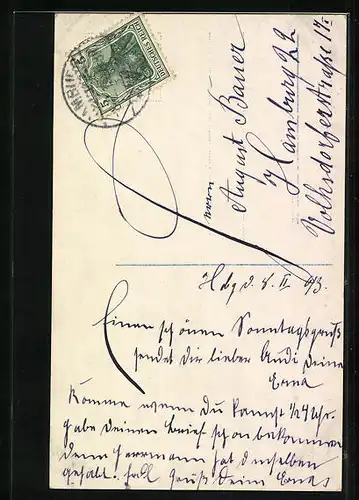 DEUTSCHES REICH
5
Herrn
August Bauer
Hamburg 22
Volksdorferstraße 17 II
Hbg d. 8. II 13.
Einen schönen Sonntagsgruß
sendet dir lieber Audi deine
Erna
Komme wenn du kannst 1/24 Uhr.
habe deinen Brief schon bekommen
denn Herrmann hat denselben
gehabt. Gruß Deine Erna